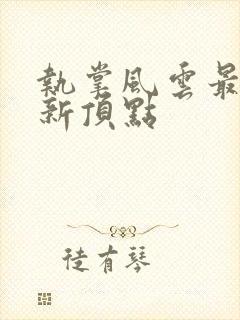 執掌風雲最
新頂點
徒有琴